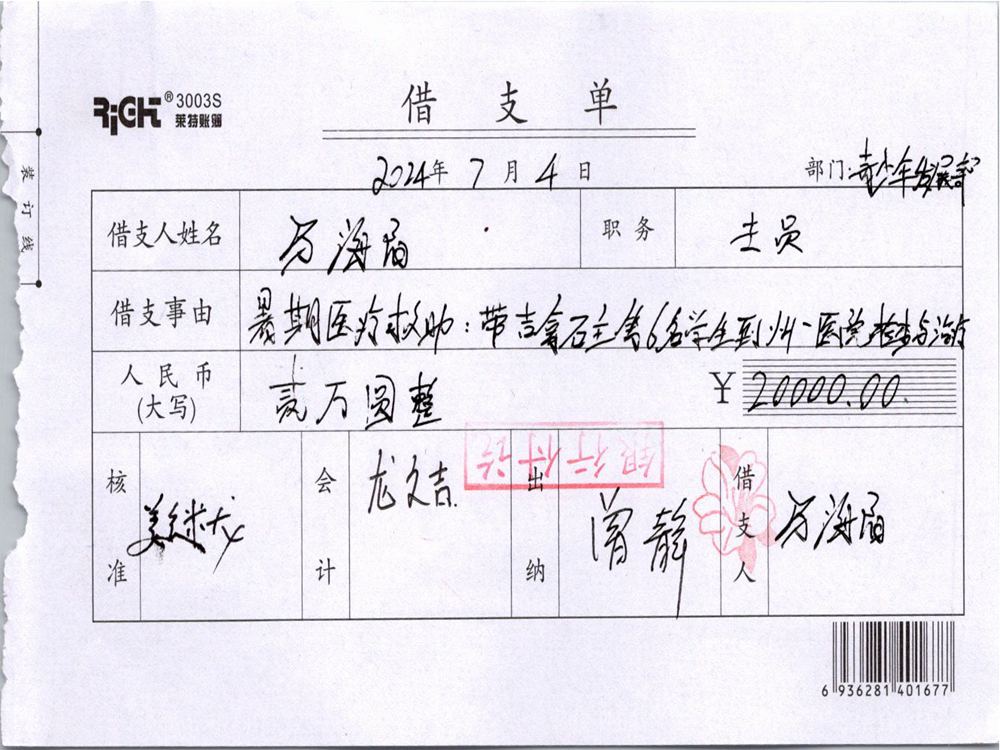 RiGHT® 3003S
莱特账簿
借支单
2024年7月4日
部门:青少年发展部
装订线
借支人姓名 万海眉 职务 主员
借支事由 暑期医疗救助:带吉拿石主等6名学生到州一医院检查与治疗
人民币(大写) 贰万圆整 ¥20000.00
银行付讫
核准 会计 龙文吉 出纳 曾静 借支人 万海眉
6 936281 401677